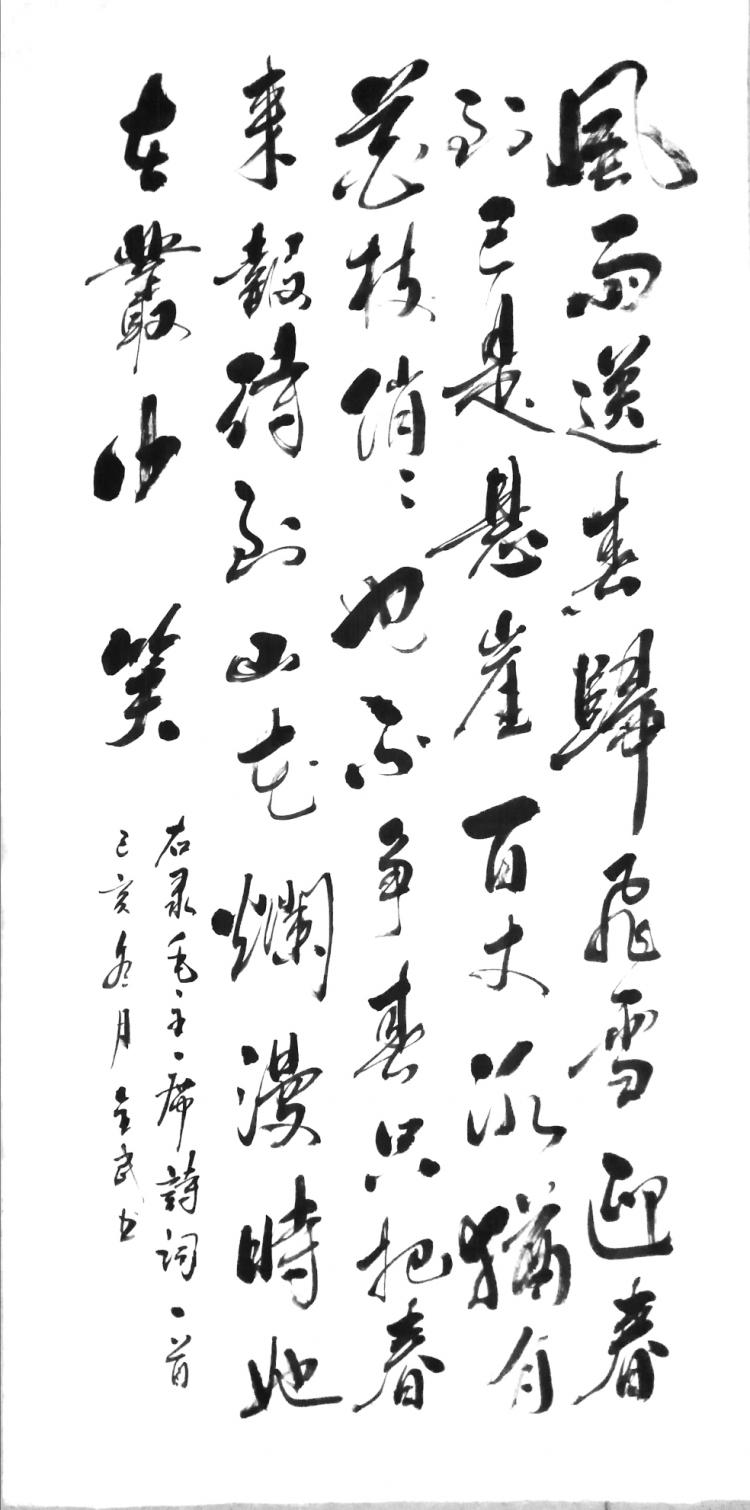 風雨送春歸飛雪迎春
到已是懸崖百丈冰猶有
花枝俏〻也不争春只把春
来報待到山花爛漫時她
在叢中笑
右录毛主席詩詞一首
己亥冬月金武书